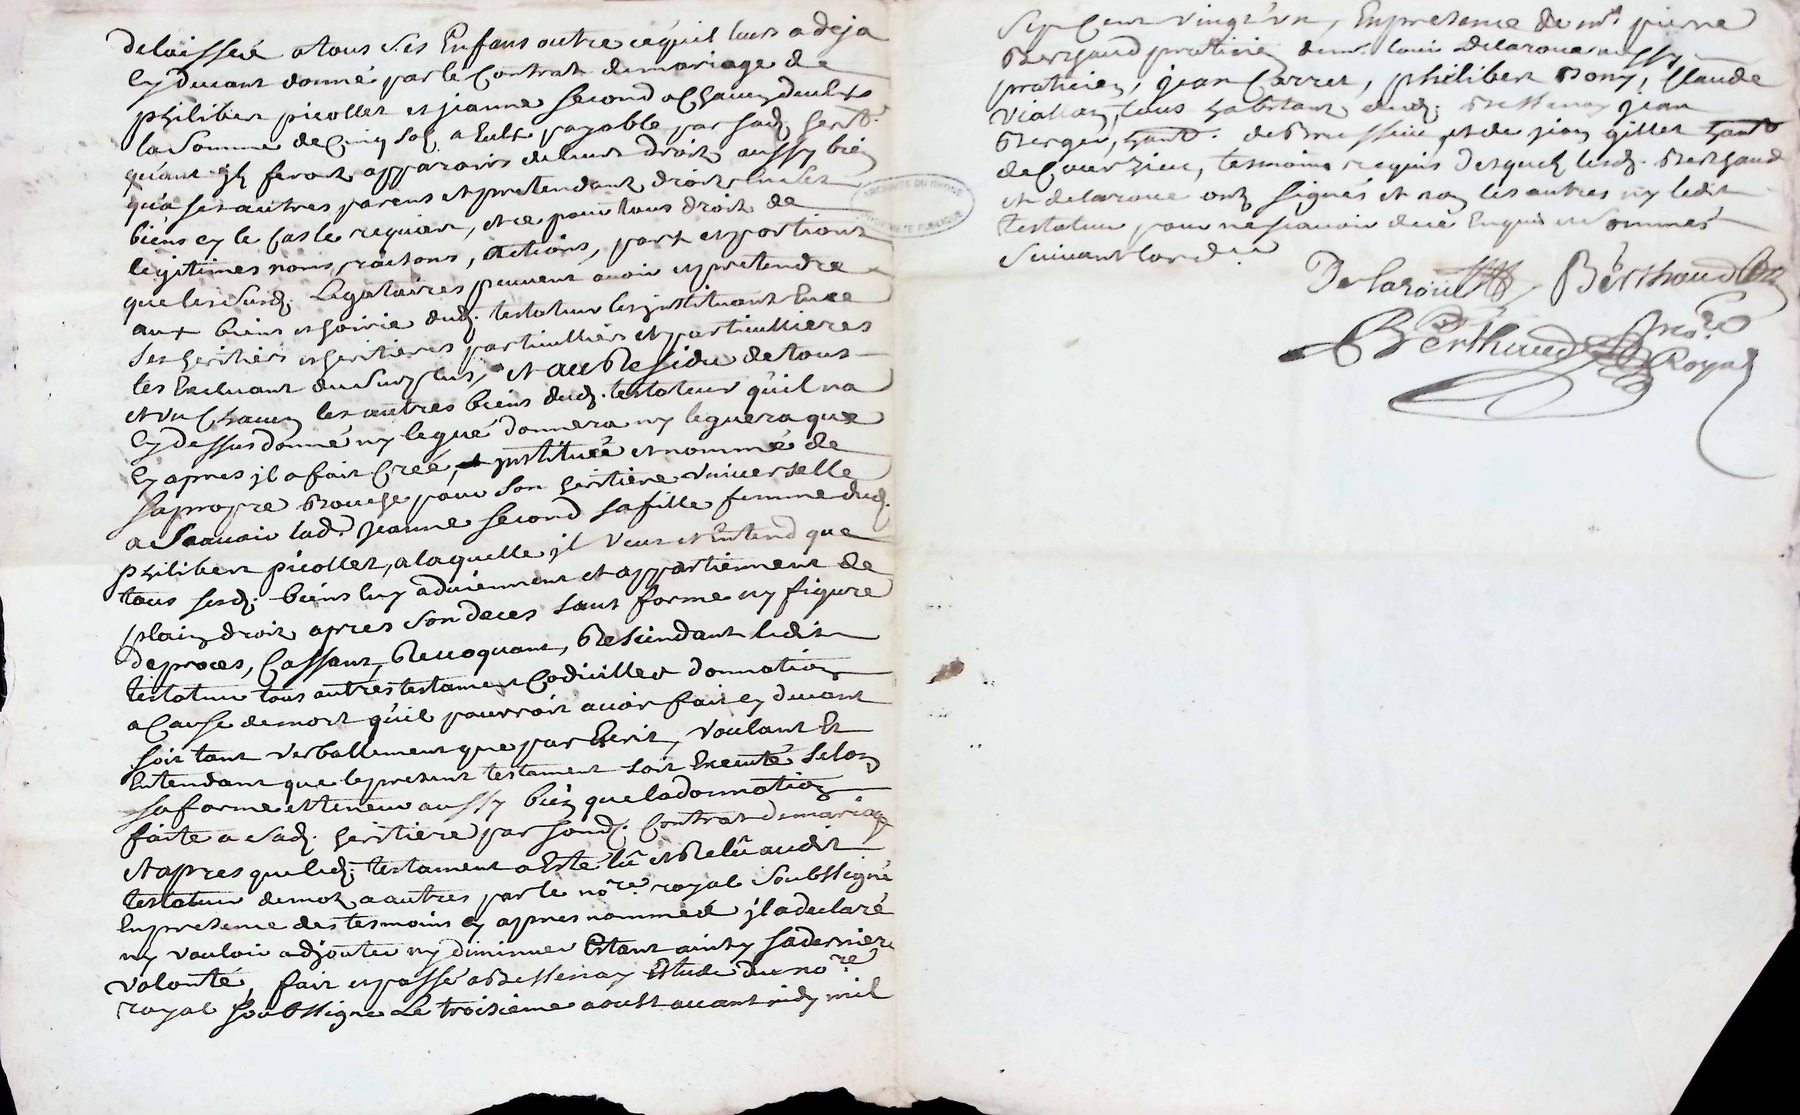 delaissée a tous ses Enfans outre ce qu'il leurs a deja
Cy devant donné par le Contrat de mariage de
philibert picollet et jeanne second a Chacun deux
la somme de Cinq sols a Eulx payable par sad. herit.
quant ilz feront apparoir de leurs droits aussy bien
qu'a ses autres parens et pretendant droit sur les
biens en le Cas le requiert, et ce pour tous droit de
legitimes noms, raisons, actions, part et portions
que lesusd. Legataires peuvent avoir et pretendre
aux biens et hoirie dud. testateur les instituant En ce
ses heritiers et heritieres particulliers et particullieres
les Excluant du surplus, et au Residu de tous
et un Chacun les autres biens dud. testateur qu'il na
Cy dessus donné ny legué donnera ny leguera que
Cy apres jl a fait Creé, institueé et nommé de
sa propre Bouche pour son heritiere universelle
a scavoir lad. Jeanne second sa fille femme dud.
philibert picollet, a laquelle jl veut et Entend que
tous sesd. biens luy adviennent et appartiennent de
plain droit apres son deces sans forme ny figure
de proces, Cassant, Revoquant, Rescindant ledit
testateur tous autres testament Codicilles donnation
a Cause de mort qu'il pourroit avoir fait Cy devant
soit tant verballement que par Ecrit, voulant Et
Entendant que le present testament soit Executé selon
sa forme et teneur aussy bien que la donnation
faite a sad. heritiere par sond. Contrat de mariage
et apres que led. testament a Esté lû et Relû audit
testateur de mot a autres par le no.re royal soubssigné
En presence des tesmoins cy apres nommés jl a declaré
ny vouloir adjouter ny diminuer Estant ainsy sa derniere
volonté, fait et passé a Bessenay Etude du no.re
royal soubssigne Le troisieme aoust avant midy mil
sept Cent vingt un, En presence de m.e pierre
Berthaud praticien, louis Delaroue aussy
praticien, jean Carret, philibert Bony, Claude
Viallon, tous habitans dud. Bessenay jean
Berger, hant. de Bressieu et de jean gillet hant
de Courzieu, tesmoins requis desquels lesd. Berthaud
et delaroue ont signés et non les autres ny ledit
testateur pour ne scavoir de ce Enquis et sommés
suivant lord.ce
Delaroue Berthaud
Berthaud no.re
Royal
ARCHIVES DU RHONE